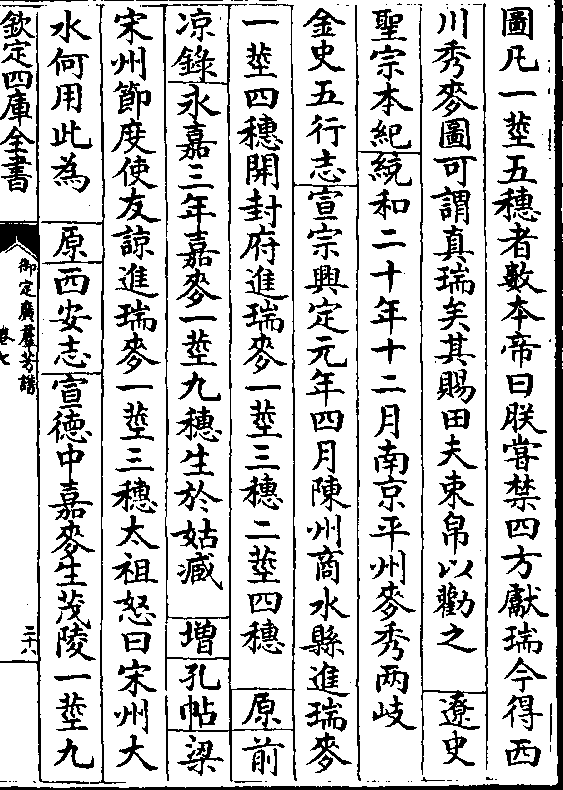 圖凡一莖五穗者數本帝曰朕嘗禁四方獻瑞今得西
川秀麥圖可謂真瑞矣其賜田夫束帛以勸之 遼史
聖宗本紀統和二十年十二月南京平州麥秀两岐
金史五行志宣宗興定元年四月陳州商水縣進瑞麥
一莖四穗開封府進瑞麥一莖三穗二莖四穗 原前
凉錄永嘉三年嘉麥一莖九穗生於姑臧 增孔帖梁
宋州節度使友諒進瑞麥一莖三穗太祖怒曰宋州大
水何用此為 原西安志宣德中嘉麥生茂陵一莖九
欽定四庫全書
御定廣羣芳譜
卷七